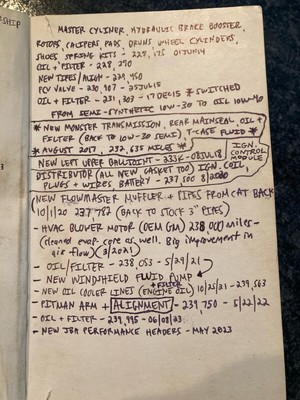 RSHIP
MASTER CYLINER, HYDRAULIC BRAKE BOOSTER,
ROTORS, CALIPERS, PADS, DRUMS WHEEL CYLINDERS,
SHOES SPRING KITS - 228,175 01JUN14
OIL + FILTER - 228,270
NEW TIRES/ALIGN - 229,450
PCV VALVE - 230,907 - 25JUL15
OIL + FILTER - 231,303 - 17DEC15 * SWITCHED
FROM SEMI-SYNTHETIC 10W-30 TO OIL 10W-40
* NEW MONSTER TRANSMISSION, REAR MAINSEAL OIL +
FILTER (BACK TO 10W-30 SEMI) T-CASE FLUID *
* AUGUST 2017, 232,635 MILES *
NEW LEFT UPPER BALLJOINT - 233K - 08JUL18
IGN.
CONTROL
MODULE
DISTRIBUTOR (ALL NEW GASKET TOO) IGN. COIL,
PLUGS + WIRES, BATTERY - 237,500 8/2020
NEW FLOWMASTER MUFFLER + PIPES FROM CAT BACK
10/1/20 237,782 (BACK TO STOCK 3" PIPES)
- HVAC BLOWER MOTOR (OEM GM) 238,000 miles -
(cleaned evap core as well. Big improvement in
air flow) (3/2021)
- OIL/FILTER - 238,053 - 5/29/21
- NEW WINDSHIELD FLUID PUMP
- NEW OIL COOLER LINES (ENGINE OIL) + FILTER 10/25/21 - 239,563
- PITMAN ARM + ALIGNMENT - 239,750 - 5/22/22
- OIL + FILTER - 239,995 - 06/05/23
- NEW JBA PERFORMANCE HEADERS - MAY 2023